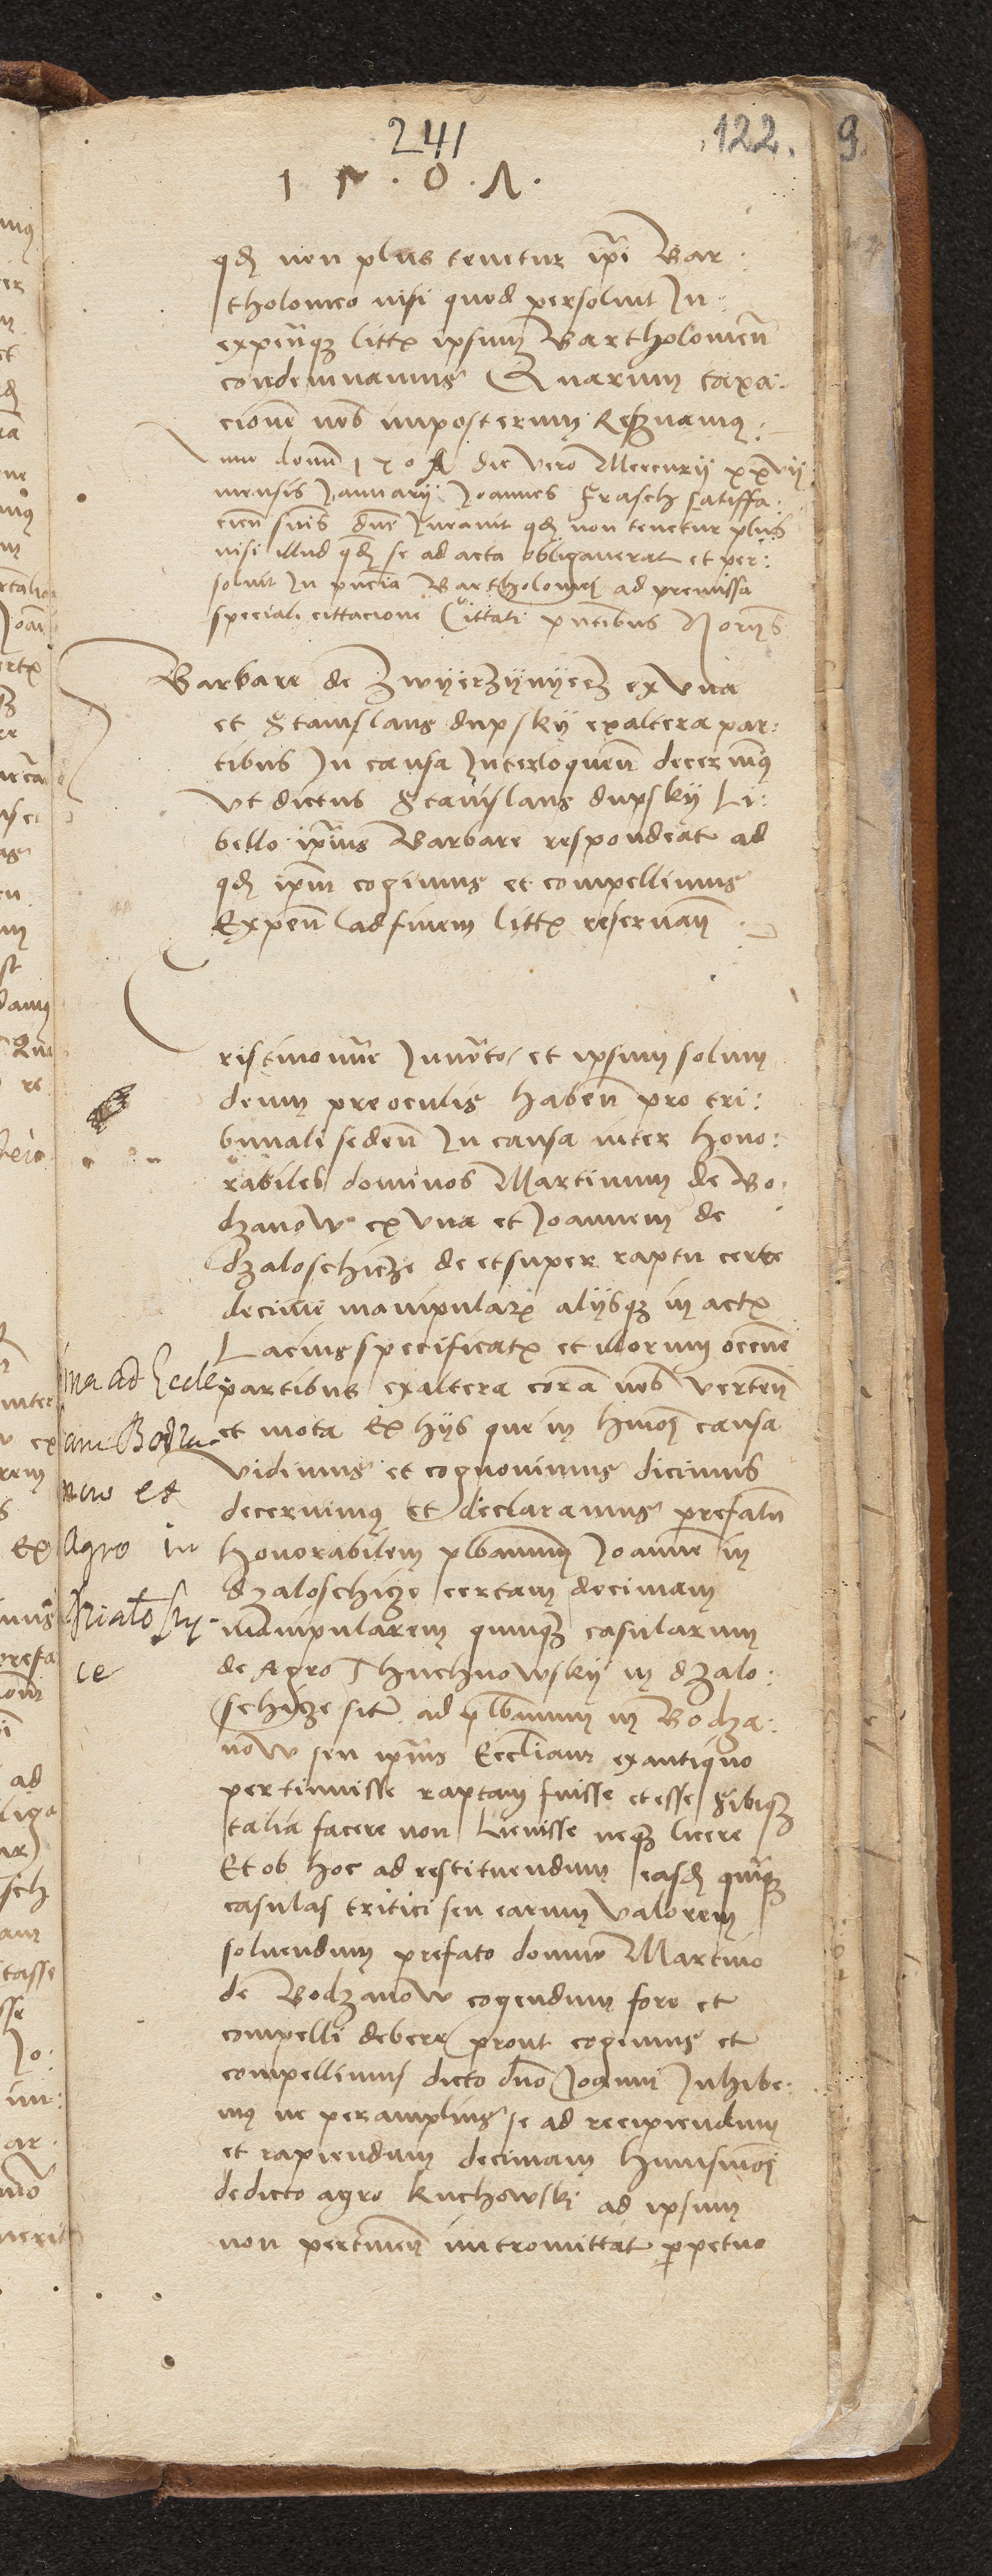 241
122.
9.
1 5 . 0 . 7 .
qd non plus tenetur ipi Bar
tholomeo nisi quod persoluit In
expensqz littis ipsum Bartholomeu
condemnamus Quarum taxa.
cionem nob imposterum Reseruamus
Anno domi 1507 die vero Mercurij xxvij
mensis Januarij Joannes Frasch satisffa.
cien suis dnē Jurauit qd non tenetur plus
nisi illud qd se ad acta obligauerat et per:
soluit In pncia Bartholomei ad premissa
speciali cittacione Cittati pntibus Norijs
Barbare de Zwyerzynyecz ex vna
et Stanislaus dupsky ex altera par:
tibus In causa Interloquen decernimus
Vt dictus Stanislaus dupsky Li:
bello ipius Barbare respondeat ad
qd ipm cogimus et compellimus
Expen ad finem littis reseruan
Cristi nomine Inuocato et ipsum solum
deum preoculis haben pro tri:
bunali seden In causa inter hono:
rabiles dominos Martinum de Bo
dzanow ex vna et Joannem de
dzaloschicze de et super raptu certe
decime manipularis alijsqz in actis
Lacius specificatis et illorum occone
partibus ex altera coram nob verten
et mota Ex hijs que in hmoi causa
vidimus et cognouimus dicimus
decernimus et declaramus prefatu
honorabilem plbanum Joannem in
dzaloschicze certam decimam
manipularem quinqz casularum
de Agro Thuchnowsky in dzalo:
schicze sitis ad plbanum in Bodza:
now seu ipius Eccliam ex antiquo
pertinuisse raptam fuisse et esse Sibiqz
talia facere non Licuisse neqz licere
Et ob hoc ad restituendum easd quinqz
casulas tritici seu earum valorem
soluendum prefato domino Martino
de Bodzanow cogendum fore et
compelli debere prout cogimus et
compellimus dicto dno Joanni Inhibe.
mus ne per amplius se ad recipiendum
et rapiendum decimam huiusmodi
de dicto agro Kuchowski ad ipsum
non pertinen intromittat perpetuo
ma ad Eccle
am Bodza
now et
Agro in
Dzialoszy
ce